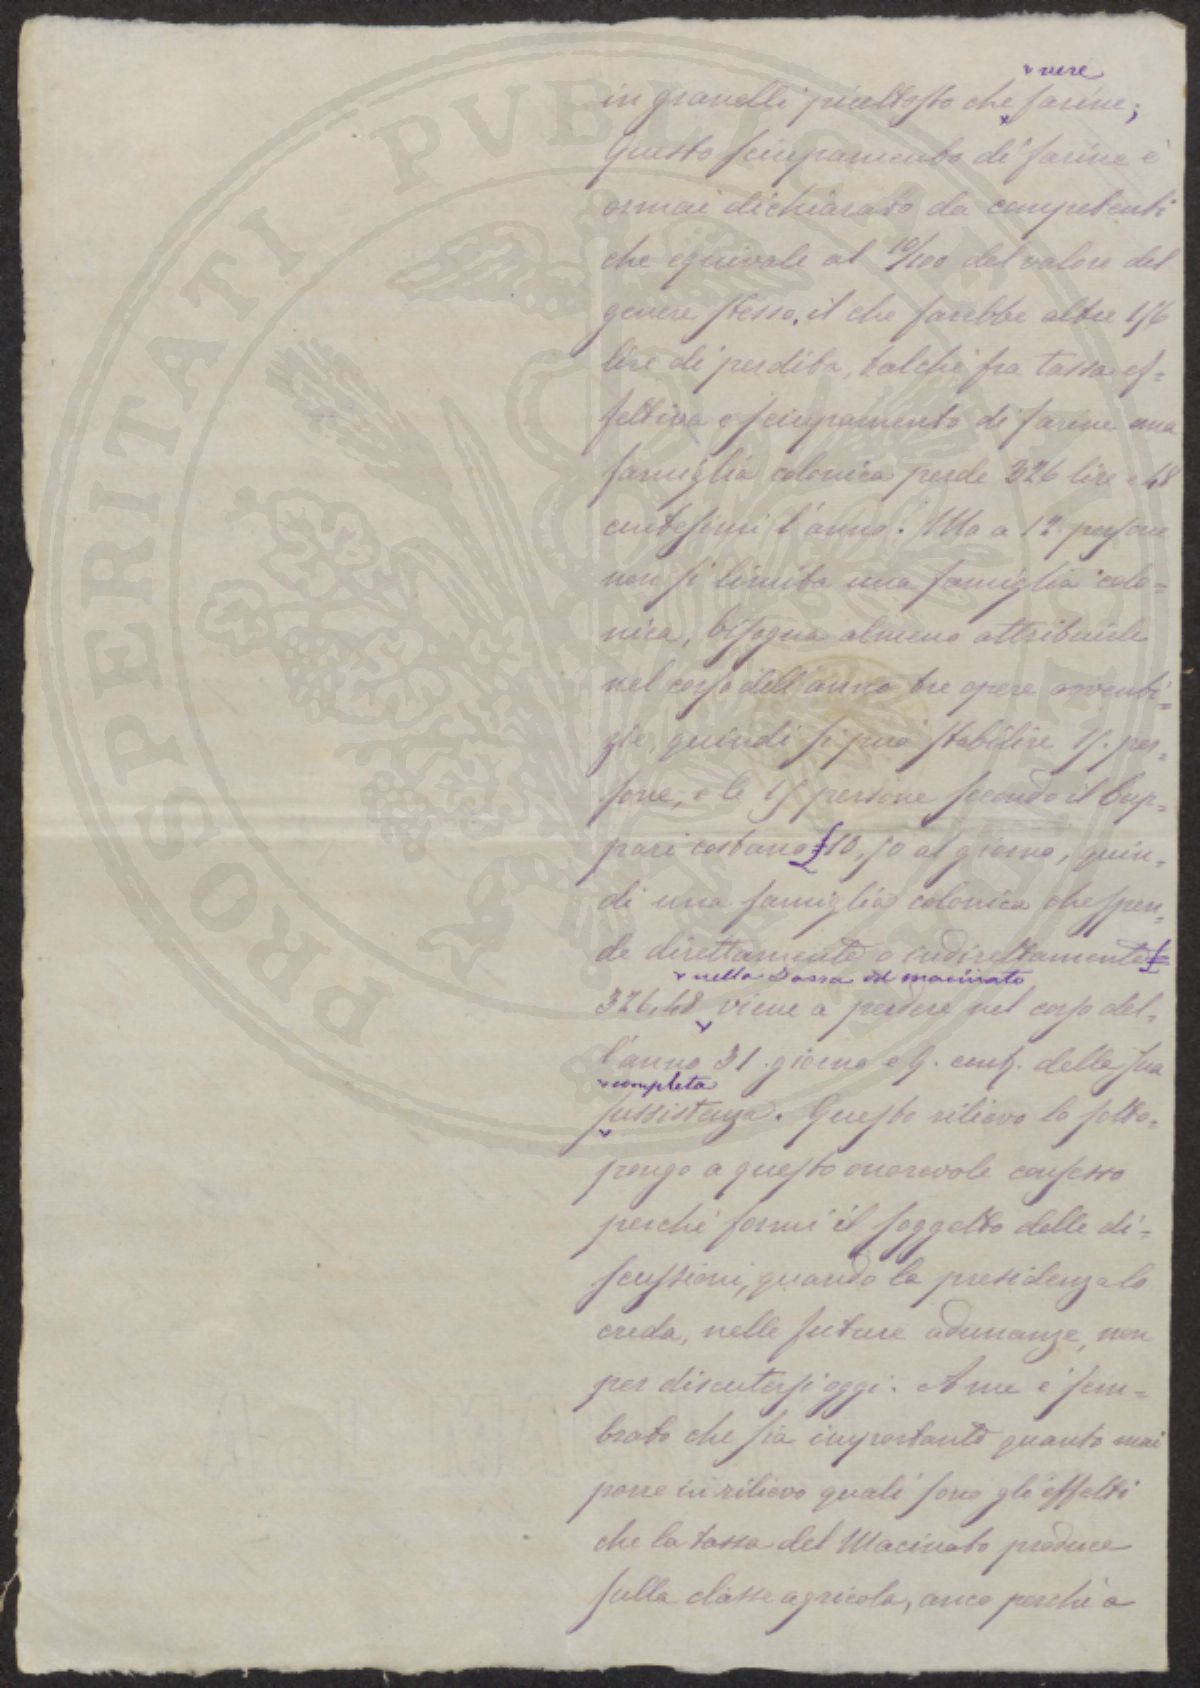 PROSPERITATI PVBLICAE
vere
in granelli piuttosto che farine;
Questo sciupamento di farine è
ormai dichiarato da competenti
che equivale al 10/100 del valore del
genere stesso, il che sarebbe altre 156
lire di perdita, talchè fra tassa ef=
fettiva e sciupamento di farine una
famiglia colonica perde 326 lire e 48
centesimi l'anno. Ma a 12. persone
non si limita una famiglia colo=
nica, bisogna almeno attribuirle
nel corso dell'anno tre opere avventi=
zie, quindi si può stabilire 15. per=
sone, e le 15 persone secondo il Cup=
pari costano £ 10,50 al giorno, quin=
di una famiglia colonica che spen=
de direttamente o indirettamente £
nella Tassa del macinato
326,48 viene a perdere nel corso del=
l'anno 31. giorno e 9. cent. della sua
completa
sussistenza. Questo rilievo lo sotto=
pongo a questo onorevole consesso
perchè formi il soggetto delle di=
scussioni, quando la presidenza lo
creda, nelle future adunanze, non
per discutersi oggi. A me è sem=
brato che sia importante quanto mai
porre in rilievo quali sono gli effetti
che la tassa del Macinato produce
sulla classe agricola, anco perchè a